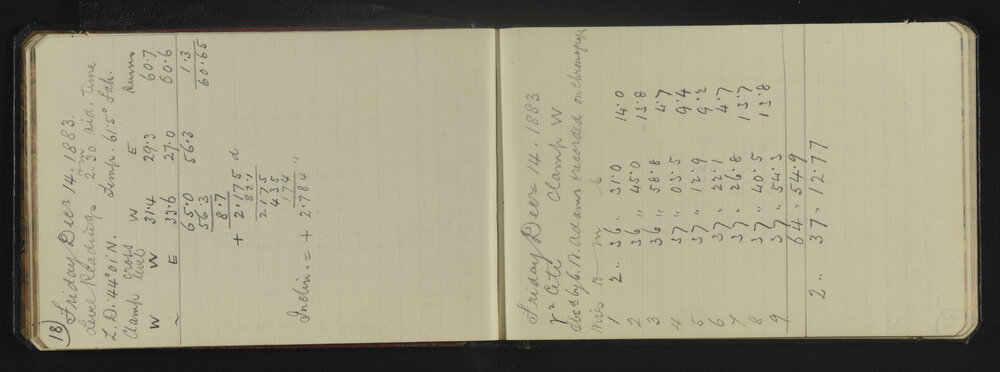 18) Friday Decr 14. 1883.
Level Readings 2h 30m sid. time
L.D. 44° 01' N. Temp. 61.5° Fah.
Clamp cross level W E Sums
W 31.4 29.3 60.7
E 33.6 27.0 60.6
~ 65.0 56.3 1.3
56.3 60.65
8.7
+ 2.175 d
82.1
2175
435
174
Inclin. = + 2.784 "
Friday Decr 14. 1883
γ² Ceti Clamp W
Obsd by C. N. Adams & recorded on chronograph
Wires h m s
1 2 " 36 " 31.0 14.0
2 36 " 45.0 13.8
3 36 " 58.8 4.7
4 37 " 03.5 9.4
5 37 " 12.9 9.2
6 37 " 22.1 4.7
7 37 " 26.8 13.7
8 37 " 40.5 13.8
9 37 " 54.3
64 " 54.9
2 " 37 " 12.77